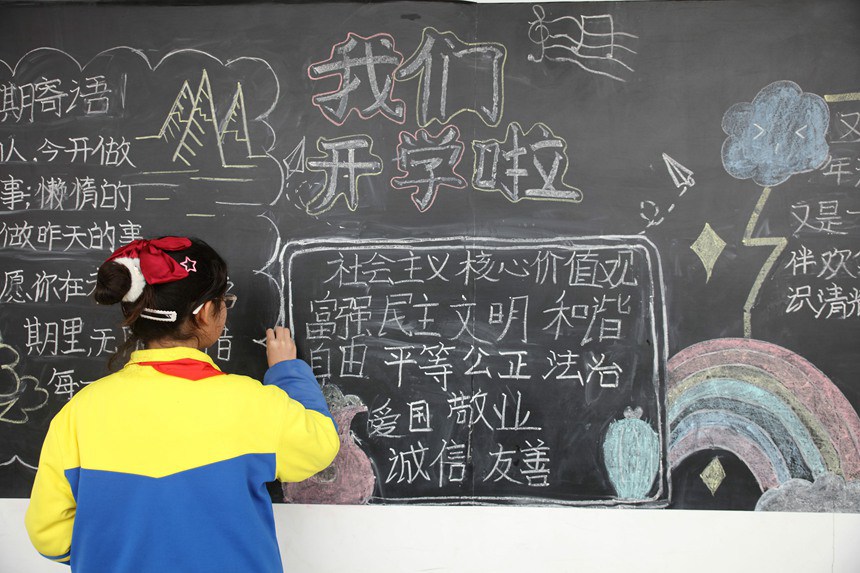 期寄语
今开做
事;懒惰的
做昨天的事
愿你在
期里,无
我们
开学啦
社会主义核心价值观
富强 民主 文明 和谐
自由 平等 公正 法治
爱国 敬业
诚信 友善
又
年
又是一
伴欢
识清